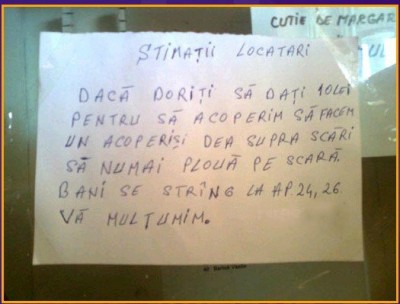 CUTIE DE MARGAR
UL
STIMAȚII LOCATARI
DACĂ DORIȚI SĂ DAȚI 10LEI
PENTRU SĂ ACOPERIM SĂ FACEM
UN ACOPERIȘI DEA SUPRA SCĂRI
SĂ NUMAI PLOUĂ PE SCARĂ.
BANI SE STRÎNG LA AP.24,26
VĂ MULȚUMIM.